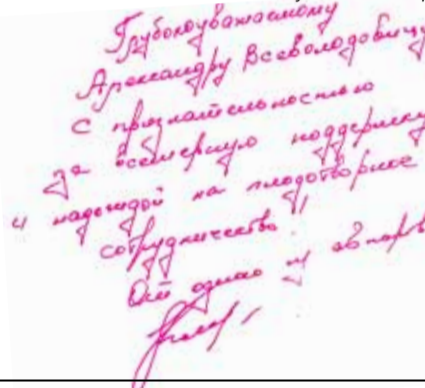 Глубокоуважаемому
Александру Всеволодовичу
с признательностью
за всемерную поддержку
и надеждой на плодотворное
сотрудничество!
От одного из авторов